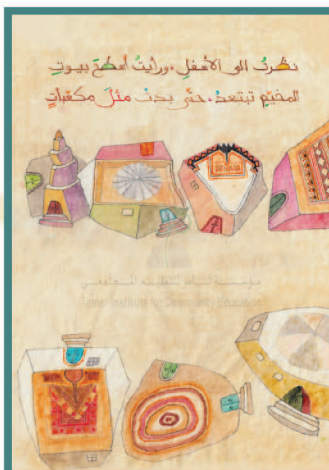 نظرتُ الى الأسفلِ، ورأيتُ أسطحَ بيوتِ
المخيّمِ تبتعدُ، حتّى بدتْ مثلَ مكعّباتٍ
مؤسسة تامر للتعليم المجتمعي
Tamer Institute for Community Education